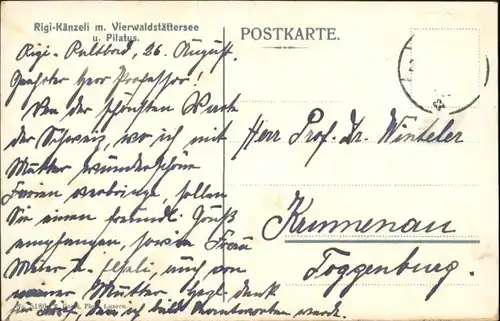 Rigi-Känzeli m. Vierwaldstättersee
u. Pilatus.
POSTKARTE.
Rigi-Kaltbad, 26. August.
Geehrter Herr Professor!
Von der schönsten Warte
der Schweiz, wo ich mit
Mutter wunderschöne
Ferien verbringe, sollen
Sie einen freundl. Gruß
empfangen, sowie Frau
Meier u. auch von
meiner Mutter. Hezl. Dank
für Brief, den ich bald beantworten werde.
Herr Prof. Dr. Winteler
Krummenau
Toggenburg.